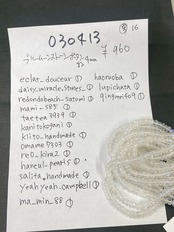 ⑧ 16
030413
ブルームーンストーンボタン
カット4mm ¥960
eclat_douceur ① haoruoba ①
daisy.miracle.stones_ ① lupichata ①
redondobeach-satomi ① qingmori69 ①
mami-585 ①
taetea3939 ①
kanitokogani ①
kiito_handmade ①
omame.9303 ①
reo_kira2 ①
haneul_pearls ①
salita_handmade ①
yeahyeah.campbell ①
ma_min_88 ①